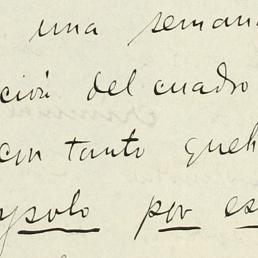 una semana
ción del cuadro
con tanto queh
solo por es